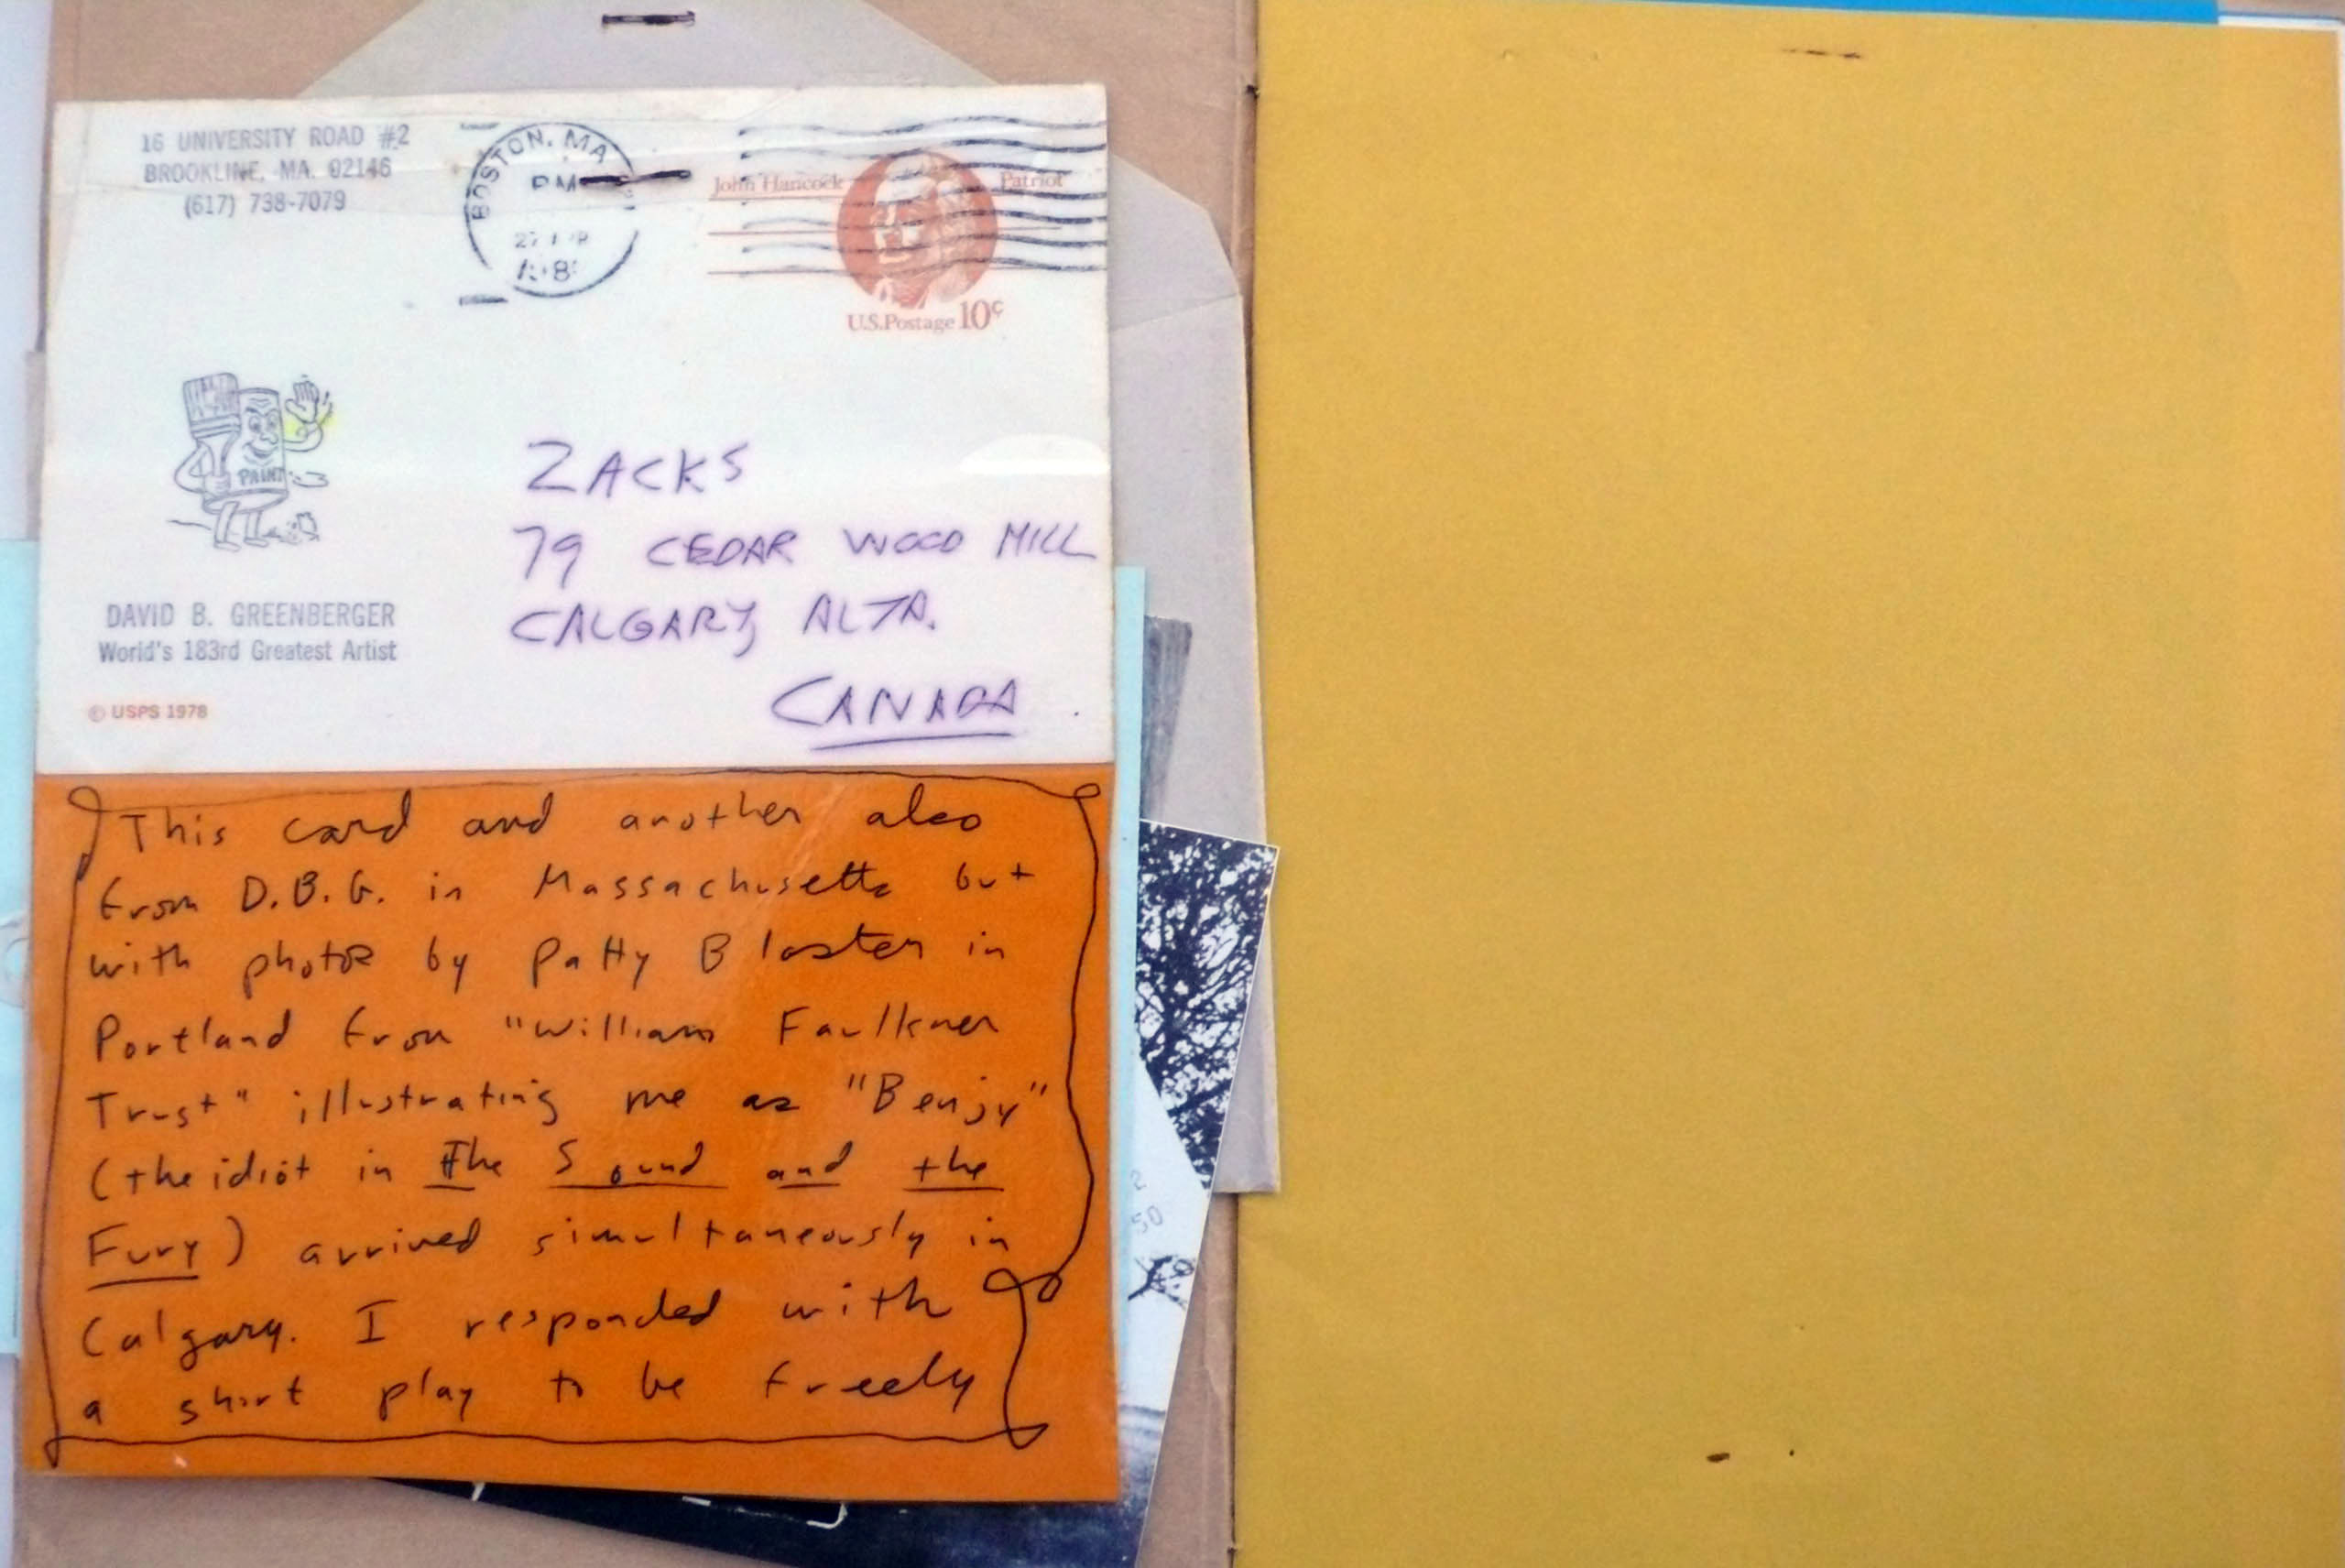 16 UNIVERSITY ROAD #2
BROOKLINE, MA. 02146
(617) 738-7079
BOSTON, MA
PM
27
John Hancock
Patriot
U.S. Postage 10c
PAINT
DAVID B. GREENBERGER
World's 183rd Greatest Artist
© USPS 1978
ZACKS
79 CEDAR WOOD HILL
CALGARY, ALTA.
CANADA
This card and another also
from D.B.G. in Massachusetts but
with photos by Patty Blaster in
Portland from "William Faulkner
Trust" illustrating me as "Benjy"
(the idiot in The Sound and the
Fury) arrived simultaneously in
Calgary. I responded with
a short play to be freely
2
50